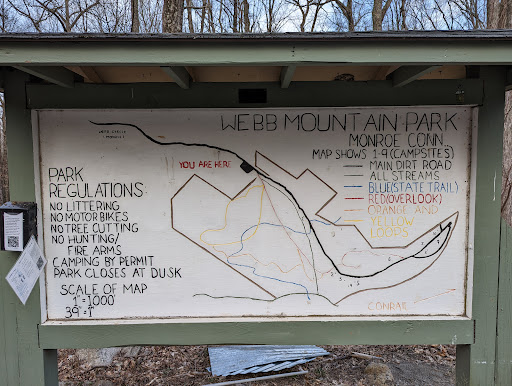 WEBB MOUNTAIN PARK
MONROE CONN.
MAP SHOWS 1-9 (CAMPSITES)
MAIN DIRT ROAD
ALL STREAMS
BLUE (STATE TRAIL)
RED (OVERLOOK)
ORANGE AND
YELLOW
LOOPS
YOU ARE HERE
PARK
REGULATIONS:
NO LITTERING
NO MOTOR BIKES
NO TREE CUTTING
NO HUNTING/
FIRE ARMS
CAMPING BY PERMIT
PARK CLOSES AT DUSK
SCALE OF MAP
1"=1,000'